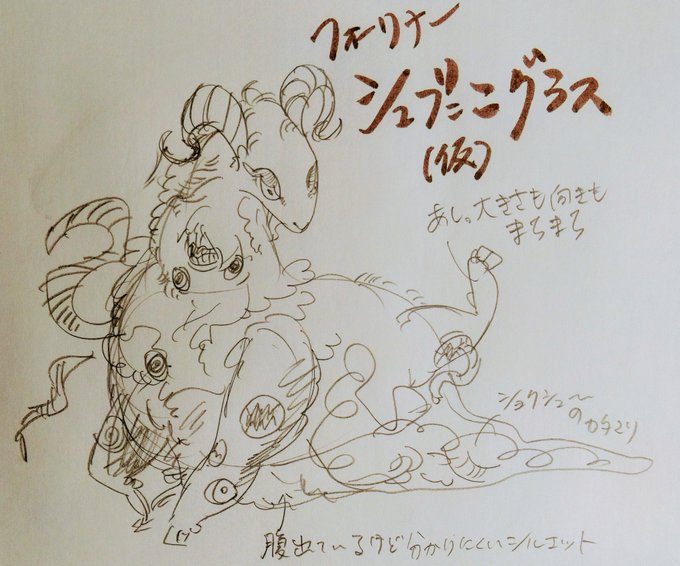 フォーリナー
シュブ=ニグラス
(仮)
あしの大きさも向きも
まちまち
ショクシュ〜
のカタマリ
腹出ているけど分かりにくいシルエット